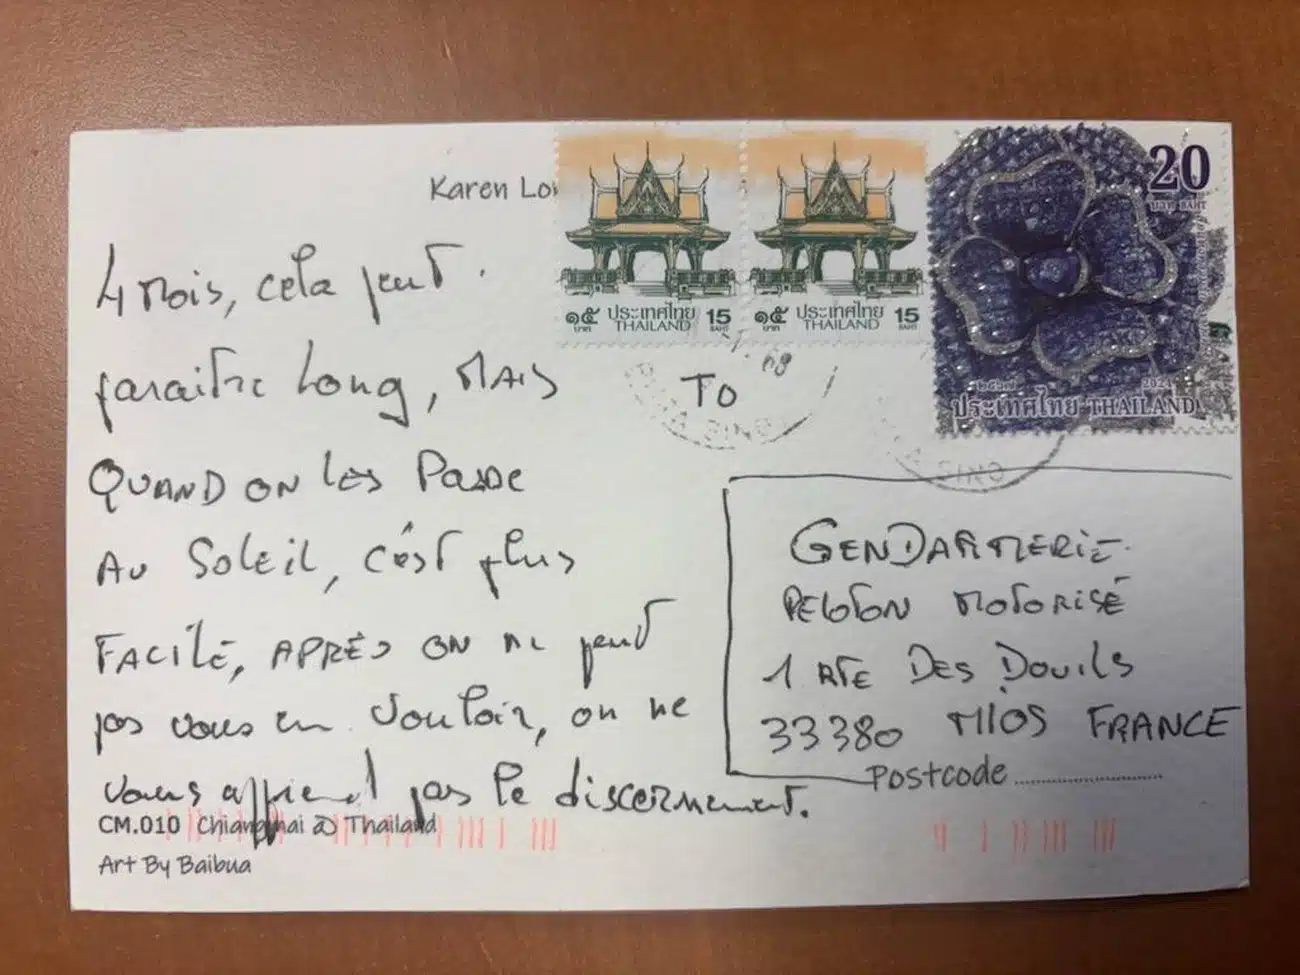 Karen Lon
4 Mois, cela peut
paraitre long, MAis
QUAND ON Les Passe
AU SOLEIL, c'est plus
FACILE, APRÈS ON ne peut
pas vous en vouloir, on ne
vous apprend pas le discernement.
CM.010 Chiangmai @ Thailand
Art By Baibua
๑๕ ประเทศไทย 15
บาท THAILAND BAHT
๑๕ ประเทศไทย 15
บาท THAILAND BAHT
20
บาท BAHT
๒๕๖๗ 2024
ประเทศไทย THAILAND
TO
GENDARMERIE
PELOTON MOTORISÉ
1 RTE DES DOUILS
33380 MIOS FRANCE
Postcode